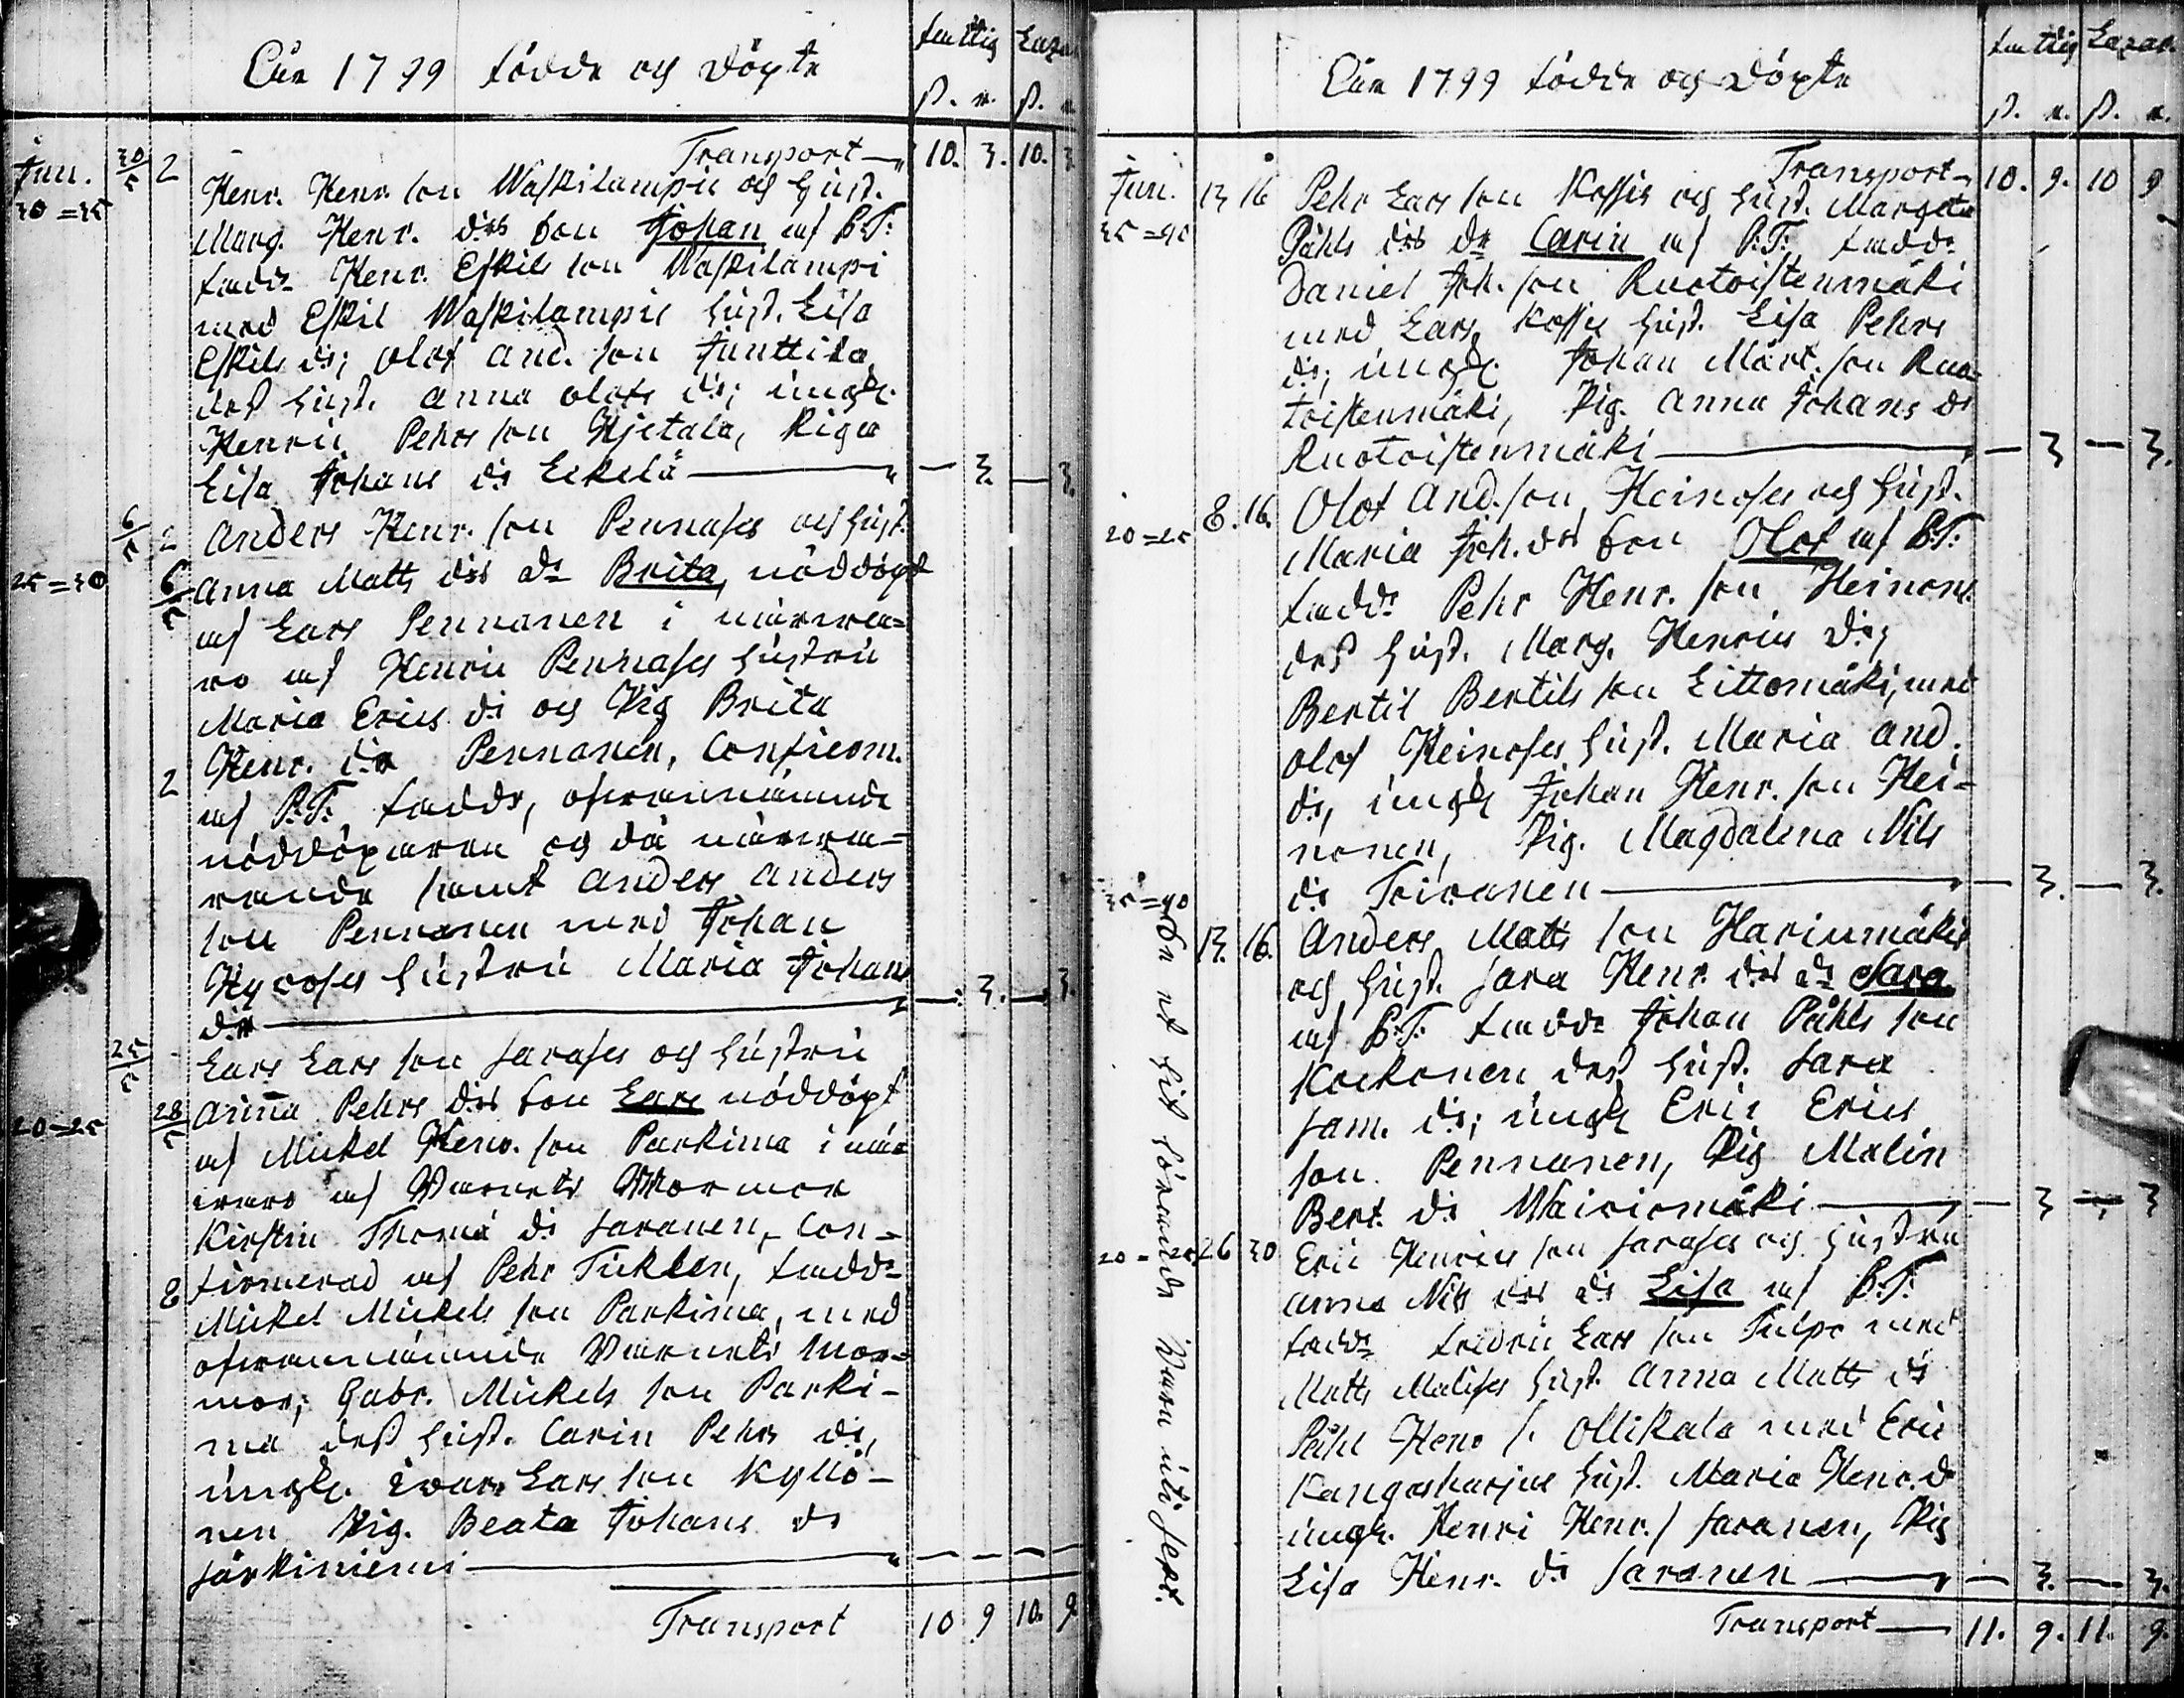 År 1799 födde och döpte
fattig Lazar.
ß. r. ß. r.
Transport 10. 3. 10. 3
Jun. 30/5 2 Henr. Henr. son Waskilampis och hust.
30=35 Marg. Henr. drs son Johan af P.T:
fadd. Henr. Eskils son Waskilampi
med Eskil Waskilampis hust. Lisa
Eskils dr; Olof And. son Junttila
dess hust. Anna Olofs dr; ungk.
Henric Pehrs son Hjetala, Piga
Lisa Johans dr Eekelä — 3. — 3.
6/5 2 Anders Henr. son Pennases och hust.
25=30 6/5 Anna Matts drs dr Brita, nöddöpt
af Lars Pennanen i närwa=
ro af Henric Pennases hustru
Maria Erics dr och Pig Brita
Henr. dr Pennanen, Confirm.
2 af P.T. faddr, ofwannämnde
nöddöparen och då närwa=
rande samt Anders Anders
son Pennanen med Johan
Hyvoses hustru Maria Johans
dr — 3. — 3.
25/5 Lars Lars son Saroses och hustru
20=25 28/5 Anna Pehrs drs son Lars nöddöpt
af Mickel Henr. son Parkima i när
waro af Barnets Mormor
Kirstin Thomæ dr Saranen, Con=
8 firmerad af Pehr Ticklen, fadd=
Mickel Mickels son Parkima, med
ofwannämnde Barnets Mor=
mor; Gabr. Mickels son Parki-
ma dess hust. Carin Pehrs dr,
ungk. Iwar Lars son Kyllö-
nen Pig. Beata Johans dr
Särkiniemi — — — —
Transport 10 9 10. 9
År 1799 födde och döpte
fattig Lazar.
ß. r. ß. r.
Transport 10. 9. 10 9
Jun. 13 16 Pehr Lars son Kossis och hust. Margeta
35=40 Påhls drs dr Carin af P:T: fadd:
Daniel Joh. son Ruotoistenmäki
med Lars Kossis hust. Lisa Pehrs
dr; ungk. Johan Märt. son Ruo=
toistenmäki, Pig. Anna Johans dr
Ruotoistenmäki — 3 — 3.
8. 16. Olof And. son Heinoses och hust.
20=25 Maria Joh. drs son Olof af P.T:
fadd: Pehr Henr. son Heinonen
dess hust. Marg. Henrics dr;
Bertil Bertils son Littomäki, med
Olof Heinoses hust. Maria And.
dr, ungk Johan Henr. son Hei-
nonen, Pig. Magdalena Nils
dr Toivanen — 3. — 3.
35=40
13. 16. Anders Matts son Harinmäkis
och hust. Sara Henr. drs dr Sara
af P.T: fadd: Johan Påhls son
Kockonen dess hust. Sara
Sam. dr; ungk Eric Erics
son Pennanen, Pig Malin
Bert. dr Wairiomäki — 3 — 3
20=25 26 30 Eric Henrics son Saroses och hustru
Anna Nils drs dr Lisa af P.T:
fadd: Fredric Lars son Tulpo med
Matts Malises hust. Anna Matts dr
Påhl Henr s. Ollikala med Eric
Kangasharjus hust. Maria Henr. d.
ungk. Henric Henr. s Saranen, Pig
Lisa Henr. dr Saranen — 3. — 3.
Transport 11. 9. 11. 9.